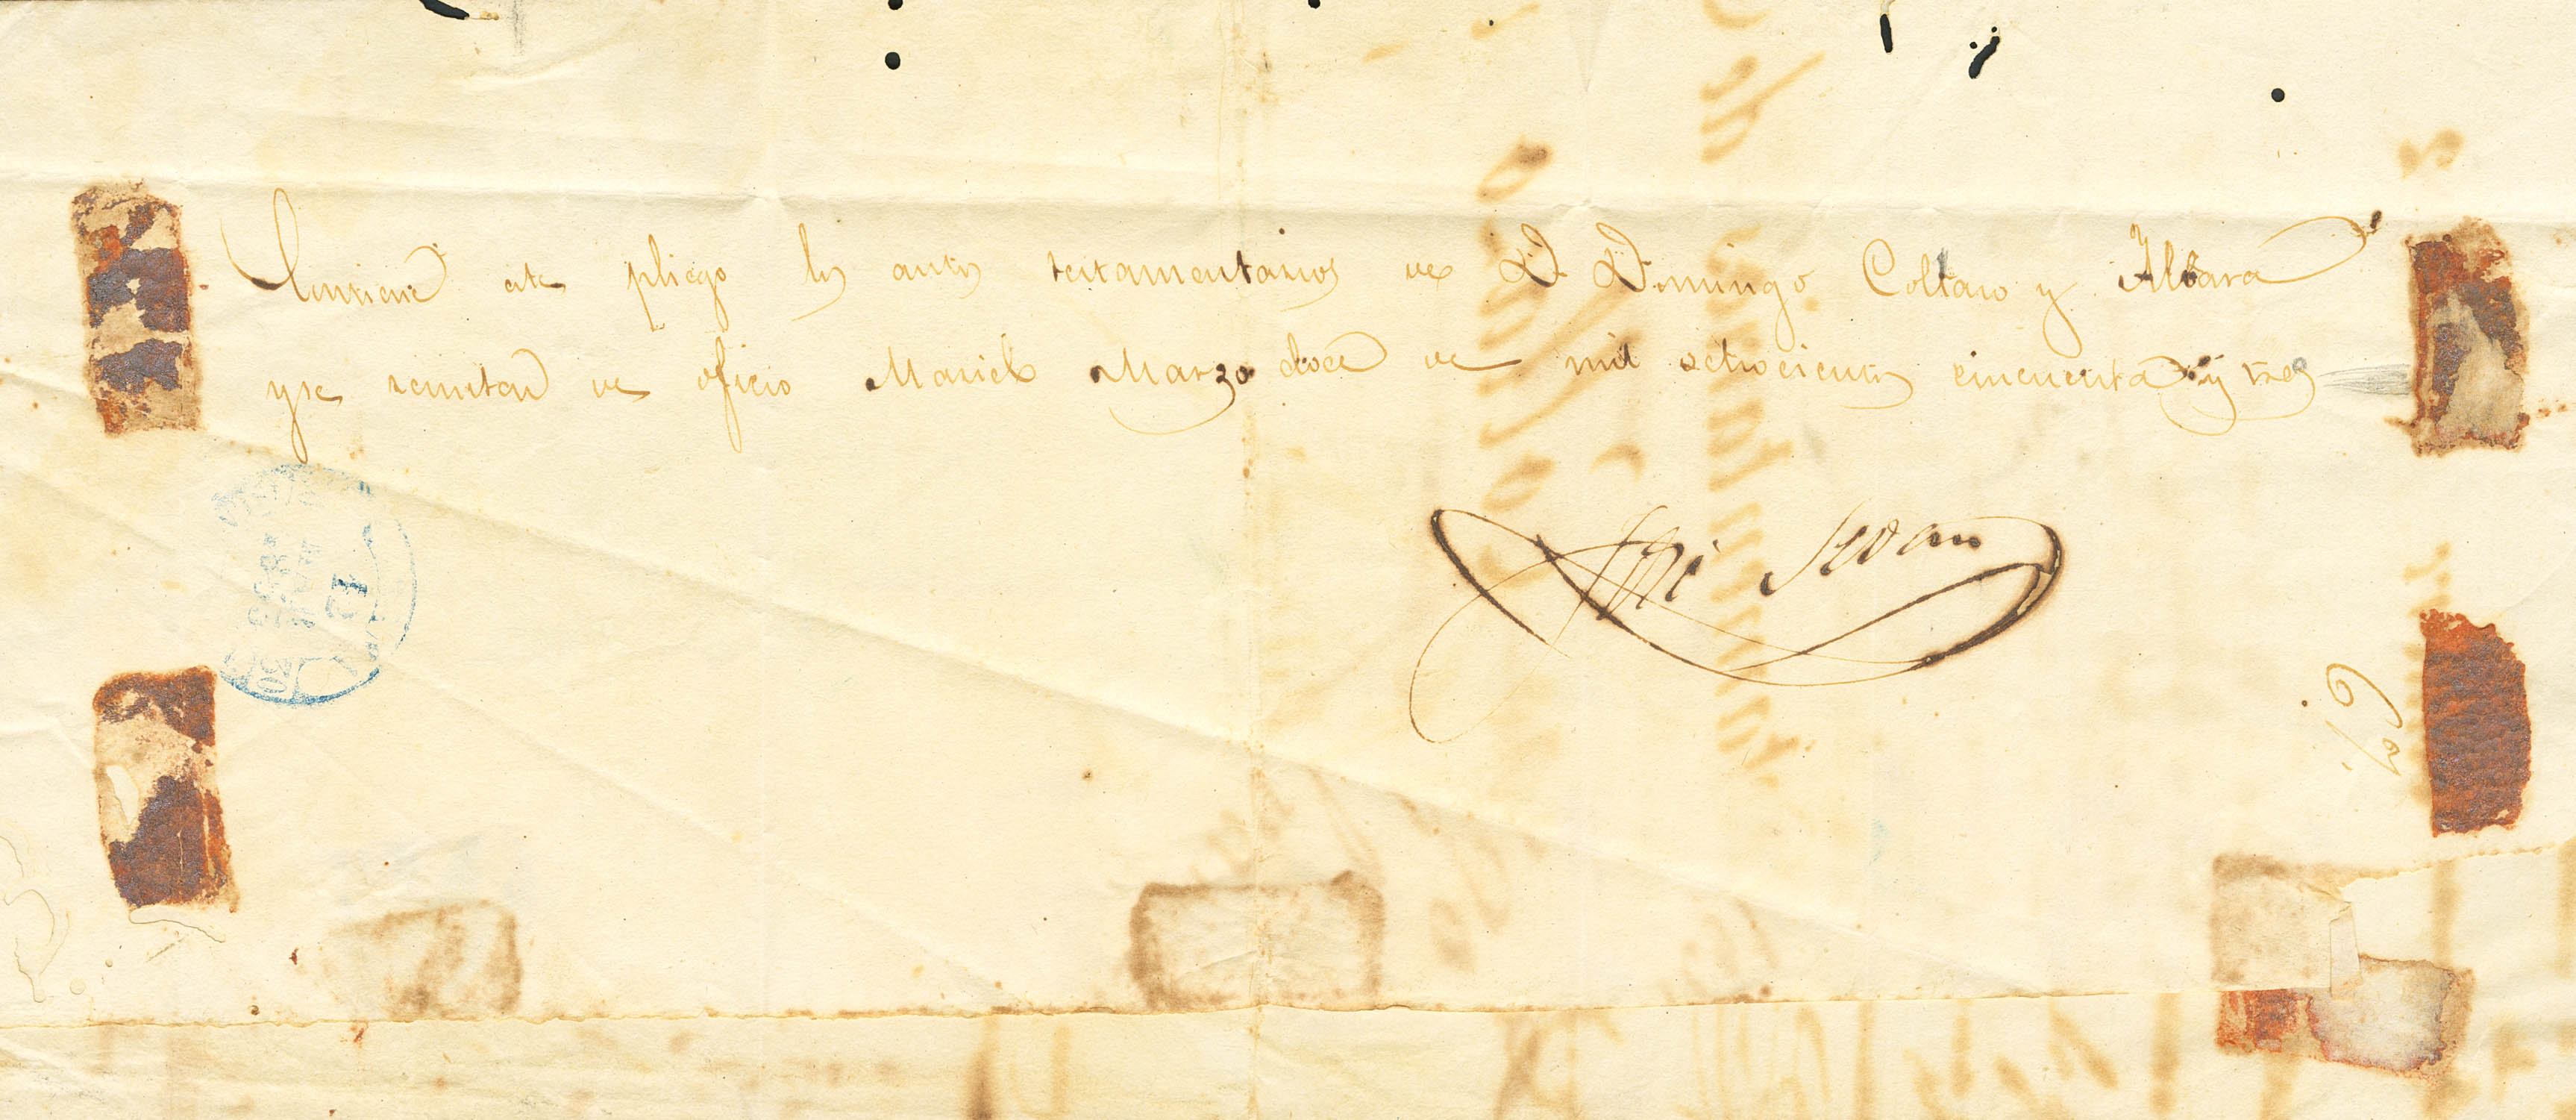 Contiene este pliego los autos testamentarios de D. Domingo Collazo y
y se remiten de oficio Mariel Marzo doce de mil ochocientos cincuenta y tres
José